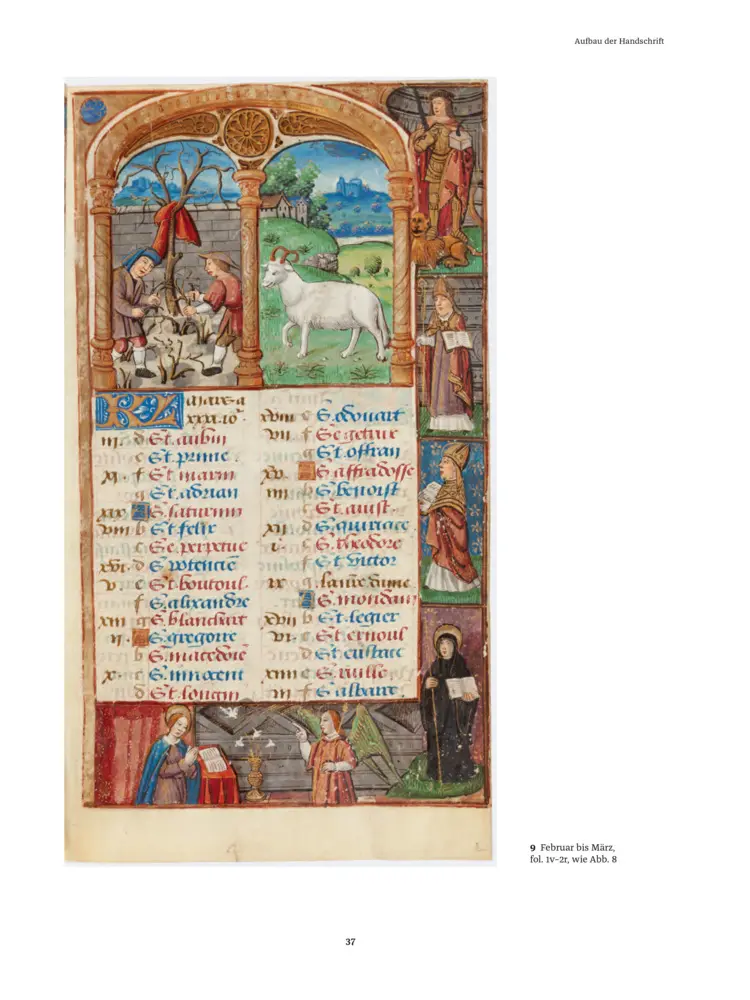 Aufbau der Handschrift
KL Mars a
xxxi io
iii d St. aubin
e St. prime
xi f St. marin
g St. adrian
xix A S. saturnin
viii b St. felix
c Se perpetue
xvi d S. potencien
v e St. boutoul
f S. alixandre
xiii g S. blanchart
ii A S. gregoire
b S. macedoie
x c S. innocent
d St. longin
xviii e S. edouart
vii f Se getrur
g St. offran
xv A S. affradosse
iiii b S. benoist
c St. aust
xii d S. quiriace
i e S. theodore
f St. victor
ix g lanre dame
A S. mondain
xvii b St. legier
vi c St. ernoul
d St. eustace
xiiii e S. rulle
iii f S. albane
9 Februar bis März,
fol. 1v–2r, wie Abb. 8
37